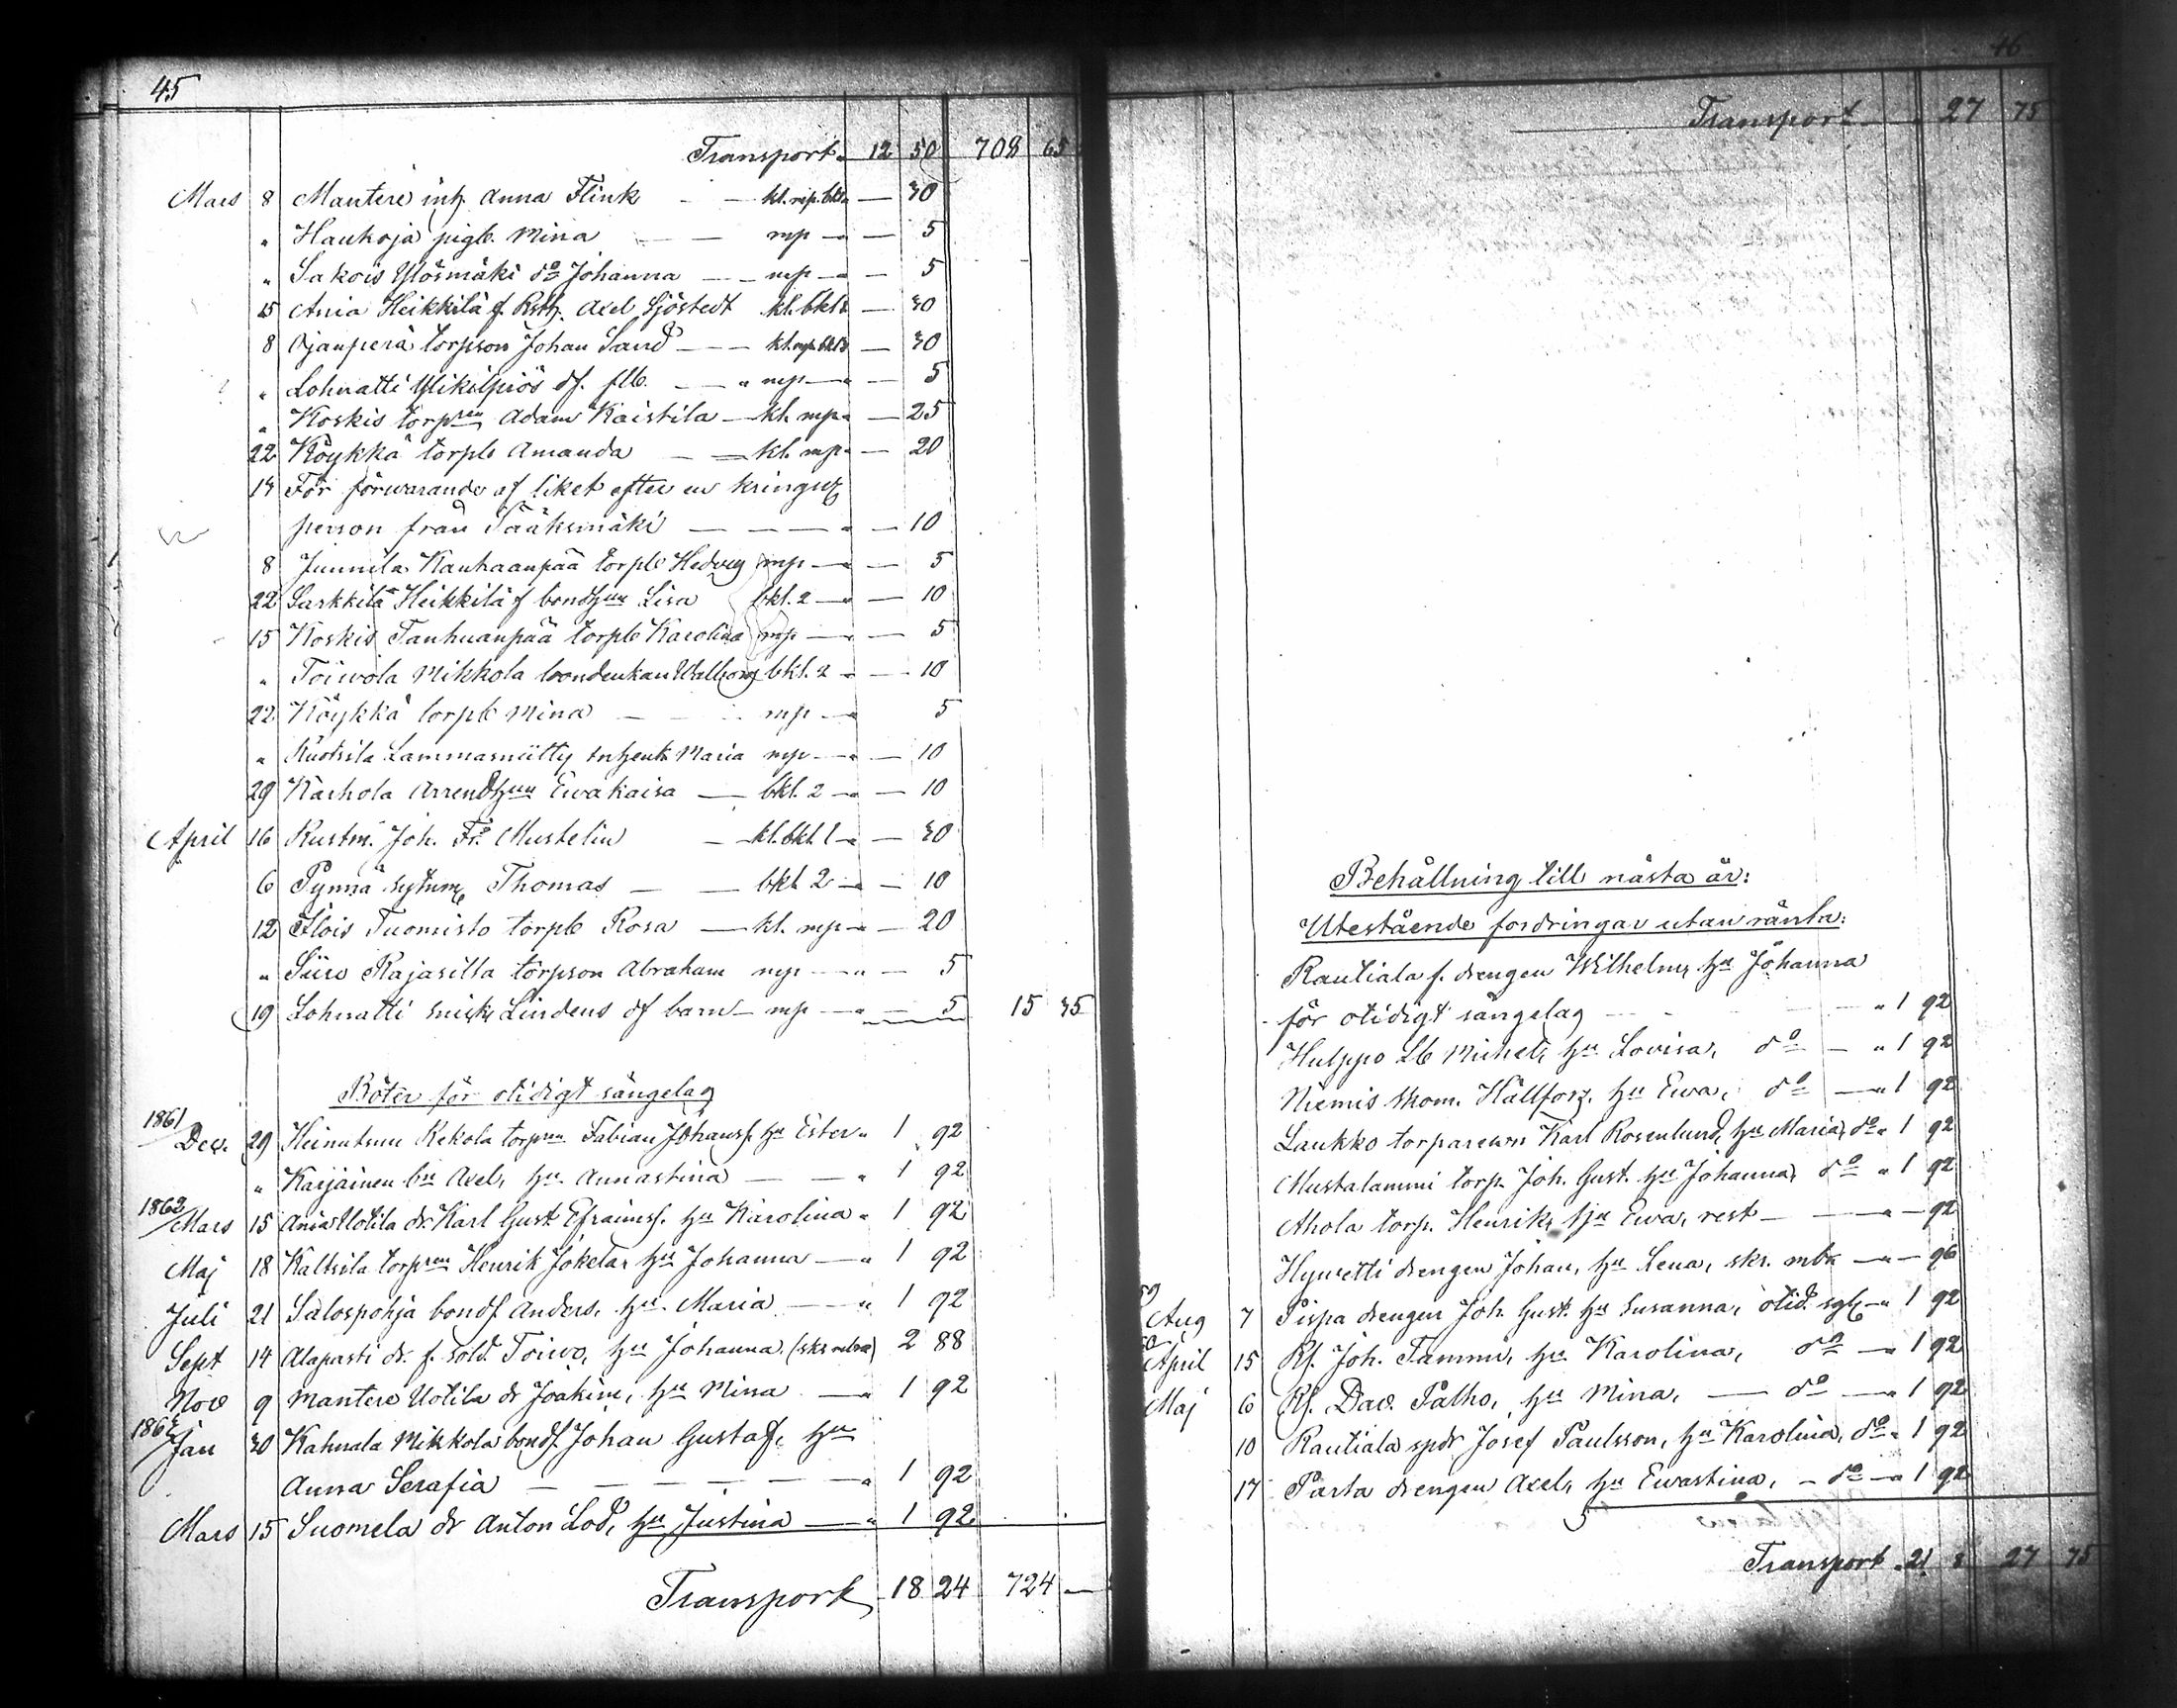 45
Transport " 12 50 708 65
Mars 8 Mantere inh. Anna Flink — — kl. mp. bkl " — 30
" Haukoja pigb. Mina — — mp — " — 5
" Sakois Ylösmäki do Johanna — — mp — " — 5
15 Ania Heikkilä f. Rsth. Axel Sjöstedt kl. bkl " — 30
8 Ojanperä torpson Johan Sand — — kl. mp. bkl " — 30
" Lohnatti Ylikilpiös df. flb. — — " mp — " — 5
" Koskis torpren Adam Kaistila — kl. mp " — 25
22 Köykkä torpb Amanda — — kl. mp " — 20
14 För förwarande af liket efter en kringst.
person från Sääksmäki — — — — " — 10
8 Junnila Kauhaanpää torpb Hedvig mp — " — 5
22 Sarkkilä Heikkilä f bondhun Lisa bkl. 2 — " — 10
15 Koskis Tanhuanpää torpb Karolina mp — " — 5
" Toiwola Mikkola bondenkan Walborg bkl. 2 " — 10
22 Köykkä torpb Mina — — mp — " 5
" Ruotsila Lammasniitty inhenk Maria mp — " — 10
29 Karhola Arrendhun Ewakaisa — bkl. 2 — " — 10
April 16 Rustm. Joh. Fr. Mustelin — kl. bkl. 1 — " — 30
6 Pynnä sytnm Thomas — — bkl 2 — " — 10
12 Flois Tuomisto torpb Rosa — kl. mp — " — 20
" Siiro Rajasilta torpson Abraham mp — " — 5
19 Lohnatti snick Lindens df barn — mp — " — 5 15 35
Böter för otidigt sängelag
1861
Dec. 29 Heinutsuu Kekola torpren Fabian Johansf. hu Ester " 1 92
" Karjainen bn Axel, hu. Annastina — — " 1 92
1862
Mars 15 Ania Uotila dr. Karl Gust Efraimsf. hu Karolina " 1 92
Maj 18 Kaltsila torpren Henrik Jokela, hu Johanna — " 1 92
Juli 21 Salospohja bondf. Anders, hu. Maria — " 1 92
Sept 14 Alapasti dr. f. sold. Toiwo, hu Johanna (skr mbra) 2 88
Nov 9 Mantere Uotila dr Joakim, hu Mina — " 1 92
Jan 30 Kahnala Mikkola bondf. Johan Gustaf, hu
Anna Serafia — — — — — " 1 92
Mars 15 Suomela dr Anton Lod, hu Justina — " 1 92
Transport 18 24 724 —
46
Transport — " 27 75
Behållning till nästa år:
Utestående fordringar utan ränta:
Rautiala f. drengen Wilhelm, hu Johanna
för otidigt sängelag — — — " 1 92
Hulppo Lb Michel, hu Lovisa, do — " 1 92
Niemis skom. Hällfors, hu Ewa, do — " 1 92
Laukko torparewn Karl Rosenlund, hu Maria, do " 1 92
Mustalammi torp. Joh. Gust. hu Johanna, do " 1 92
Ahola torp. Henrik, hu Ewa, rest — — " — 92
Hyrvetti drengen Johan, hu Lena, skr. mbr — " — 96
Aug 7 Pispa drengen Joh. Gust. hu Susanna, otid. sgl — " 1 92
April 15 Rf. Joh. Tammi, hu Karolina, do — " 1 92
Maj 6 Rf. Dav. Palho, hu Mina, — do — " 1 92
10 Rautiala spdr Josef Paulsson, hu Karolina, do " 1 92
17 Parta drengen Axel, hu Ewastina, — do — " 1 92
Transport " 21 8 27 75